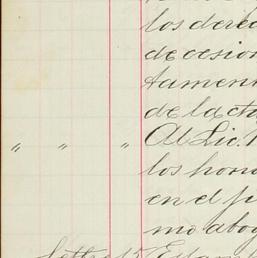 los derec
de cesion
tamen
de la ct
" " " Al Lic.
los hono
en el j
mo abog